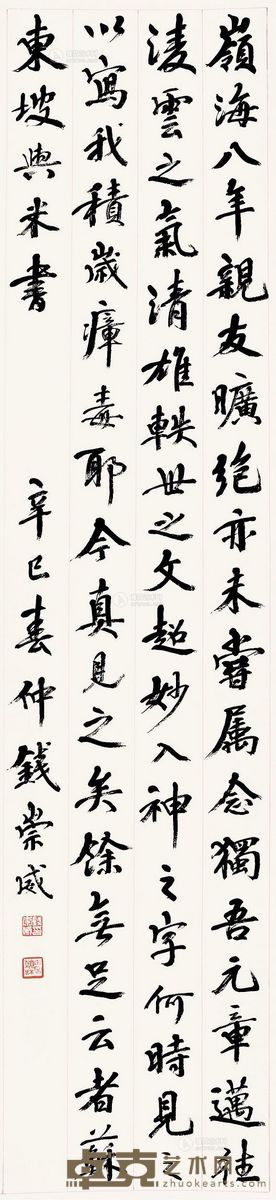 嶺海八年親友曠絶亦未嘗属念獨吾元章邁往
淩雲之氣清雄軼世之文超妙入神之字何時見之
以寫我積歳瘴毒耶今真見之矣餘無足云者蘇
東坡與米書
辛巳春仲錢崇威
卓克艺术网
zhuokearts.com